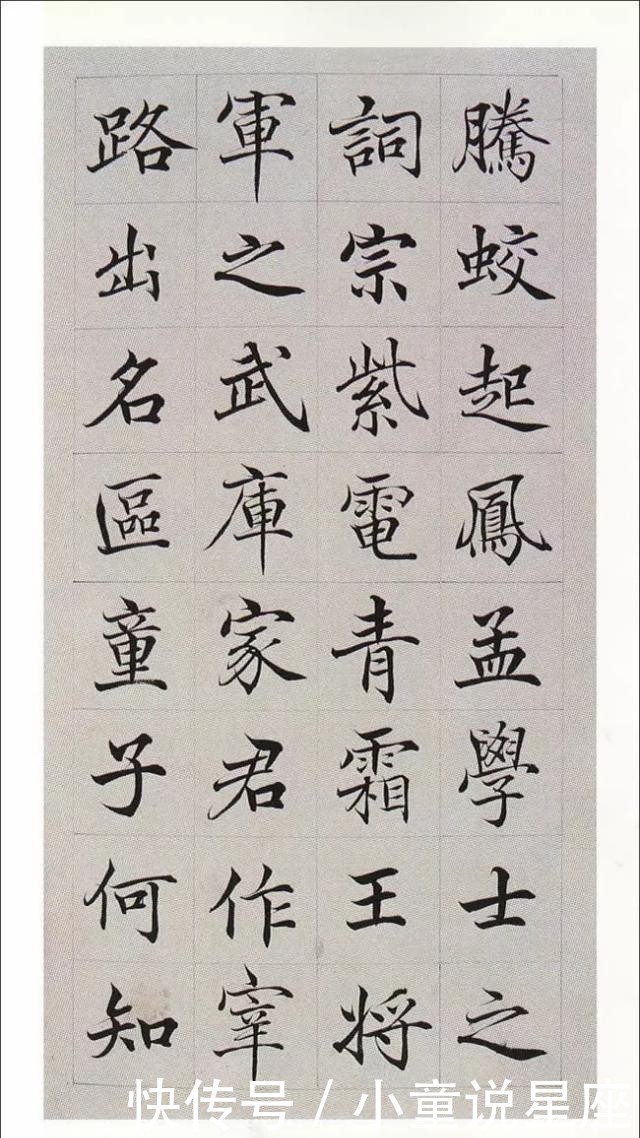 騰蛟起鳳孟學士之
詞宗紫電青霜王將
軍之武庫家君作宰
路出名區童子何知
快传号/小童说星座